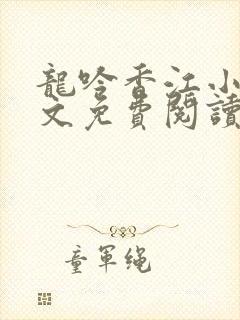 龍吟香江小
文免費閱讀
童軍繩